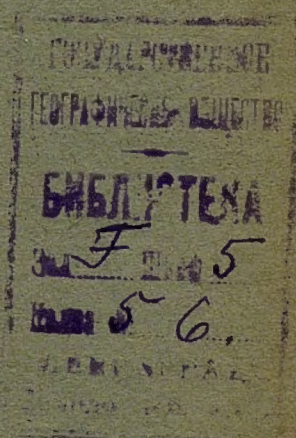 ГОСУДАРСТВЕННОЕ
ГЕОГРАФИЧЕСКОЕ ОБЩЕСТВО
БИБЛИОТЕКА
Зал F Шкаф 5
5 6.
ЛЕНИНГРАД